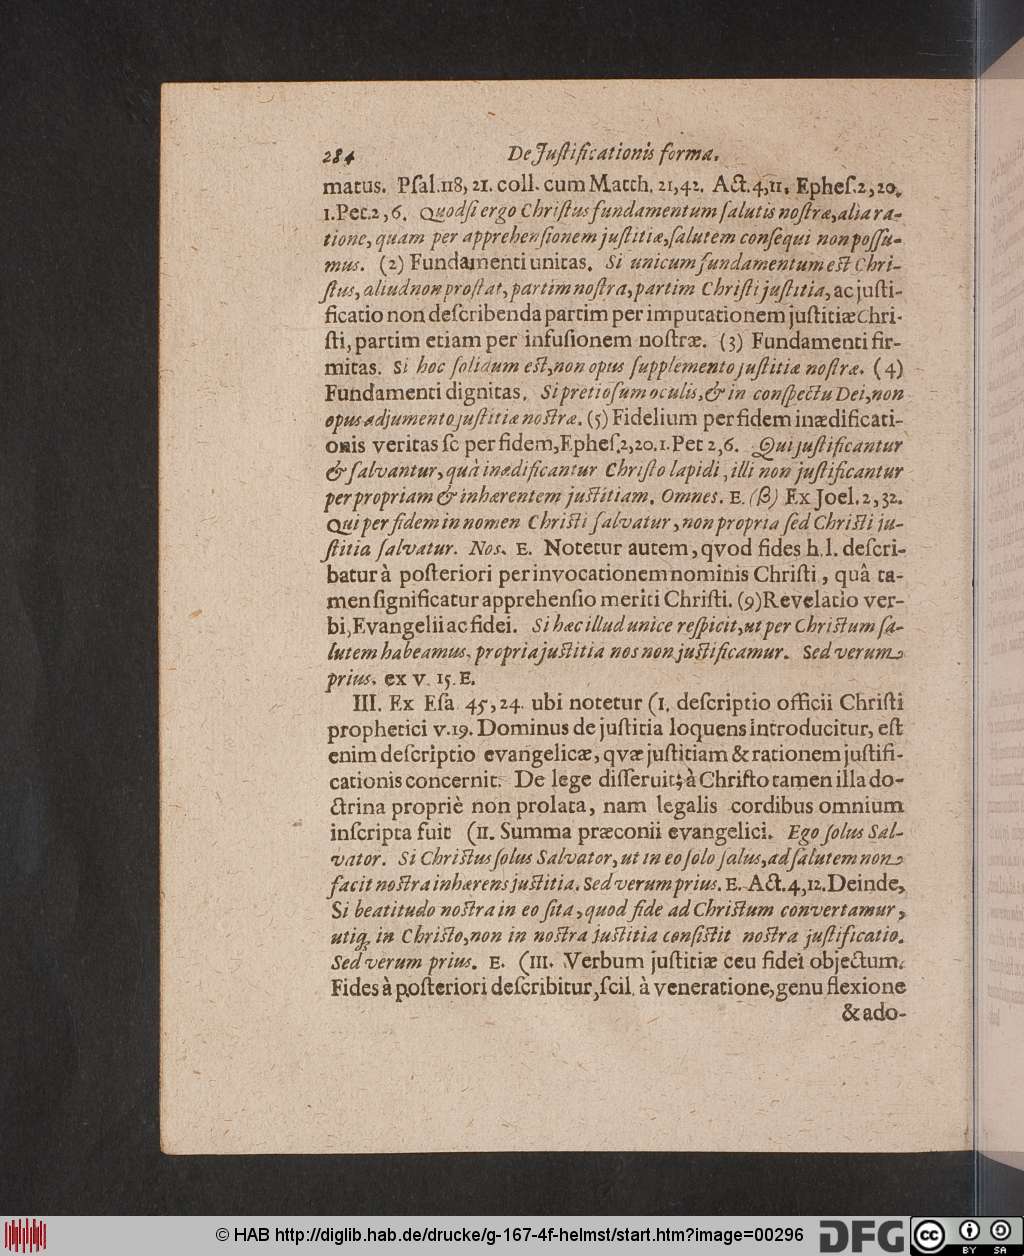 284 De Juſtificationis forma.
matus. Pſal.118, 21. coll. cum Matth. 21,42. Act.4,11. Epheſ.2,20.
1.Pet.2,6. Quodſi ergo Chriſtus fundamentum ſalutis noſtræ, alia ra-
tione, quam per apprehenſionem juſtitiæ, ſalutem conſequi non poſſu-
mus. (2) Fundamenti unitas. Si unicum fundamentum eſt Chri-
ſtus, aliud non proſtat, partim noſtra, partim Chriſti juſtitia, ac juſti-
ficatio non deſcribenda partim per imputationem juſtitiæ Chri-
ſti, partim etiam per infuſionem noſtræ. (3) Fundamenti fir-
mitas. Si hoc ſolidum eſt, non opus ſupplemento juſtitiæ noſtræ. (4)
Fundamenti dignitas. Si pretioſum oculis, & in conſpectu Dei, non
opus adjumento juſtitiæ noſtræ. (5) Fidelium per fidem inædificati-
onis veritas ſc per fidem, Epheſ.2,20.1.Pet 2,6. Qui juſtificantur
& ſalvantur, quà inædificantur Chriſto lapidi, illi non juſtificantur
per propriam & inhærentem juſtitiam. Omnes. E. (β) Ex Joel.2,32.
Qui per fidem in nomen Chriſti ſalvatur, non propria ſed Chriſti ju-
ſtitia ſalvatur. Nos. E. Notetur autem, qvod fides h.l. deſcri-
batur à poſteriori per invocationem nominis Chriſti, quâ ta-
men ſignificatur apprehenſio meriti Chriſti. (9) Revelatio ver-
bi, Evangelii ac fidei. Si hæc illud unice reſpicit, ut per Chriſtum ſa-
lutem habeamus, propria juſtitia nos non juſtificamur. Sed verum
prius. ex v. 15. E.
III. Ex Eſa 45,24. ubi notetur (I. deſcriptio officii Chriſti
prophetici v.19. Dominus de juſtitia loquens introducitur, eſt
enim deſcriptio evangelicæ, qvæ juſtitiam & rationem juſtifi-
cationis concernit. De lege differuit; à Chriſto tamen illa do-
ctrina propriè non prolata, nam legalis cordibus omnium
inſcripta fuit (II. Summa præconii evangelici. Ego ſolus Sal-
vator. Si Chriſtus ſolus Salvator, ut in eo ſolo ſalus, ad ſalutem non
facit noſtra inhærens juſtitia. Sed verum prius. E. Act.4,12. Deinde,
Si beatitudo noſtra in eo ſita, quod fide ad Chriſtum convertamur,
utiq; in Chriſto, non in noſtra juſtitia conſiſtit noſtra juſtificatio.
Sed verum prius. E. (III. Verbum juſtitiæ ceu fidei objectum.
Fides à poſteriori deſcribitur, ſcil. à veneratione, genu flexione
& ado-
© HAB http://diglib.hab.de/drucke/g-167-4f-helmst/start.htm?image=00296 DFG cc BY SA